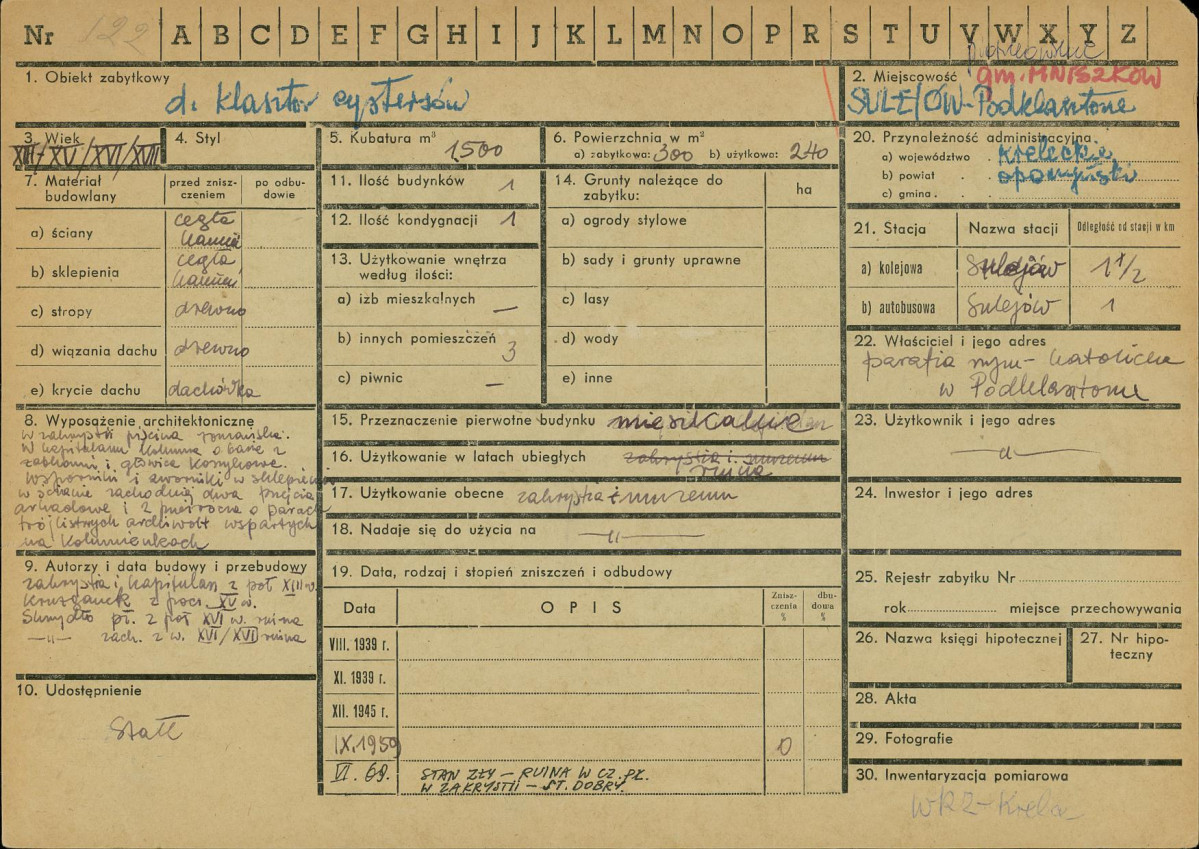 Nr 122 A B C D E F G H I J K L M N O P R S T U V W X Y Z
1. Obiekt zabytkowy
d. klasztor cystersów
2. Miejscowość
gm. MNISZKÓW
SULEJÓW-Podklasztorze
3. Wiek
XIII/XV/XVI/XVII
4. Styl
5. Kubatura m³ 1500
6. Powierzchnia w m²
a) zabytkowa: 300 b) użytkowa: 240
20. Przynależność administracyjna
a) województwo kieleckie
b) powiat opoczyński
c) gmina
7. Materiał budowlany
przed zniszczeniem
po odbudowie
a) ściany cegła kamień
b) sklepienia cegła kamień
c) stropy drewno
d) wiązania dachu drewno
e) krycie dachu dachówka
11. Ilość budynków 1
12. Ilość kondygnacji 1
13. Użytkowanie wnętrza
według ilości:
a) izb mieszkalnych —
b) innych pomieszczeń 3
c) piwnic —
14. Grunty należące do
zabytku:
ha
a) ogrody stylowe
b) sady i grunty uprawne
c) lasy
d) wody
e) inne
21. Stacja Nazwa stacji Odległość od stacji w km
a) kolejowa Sulejów 1 1/2
b) autobusowa Sulejów 1
22. Właściciel i jego adres
parafia rzym-katolicka
w Podklasztorzu
8. Wyposażenie architektoniczne
W zakrystii piscina romańska.
W kapitularzu kolumna o bazie z
żabkami i głowicą koszykową.
Wsporniki i zworniki w sklepieniu
w ścianie zachodniej dwa przejścia
arkadowe i 2 przeźrocza o parach
trójlistnych archiwolt wspartych
na kolumienkach
15. Przeznaczenie pierwotne budynku mieszkalne
16. Użytkowanie w latach ubiegłych zakrystia i muzeum
ruina
17. Użytkowanie obecne zakrystia i muzeum
18. Nadaje się do użycia na —"—
23. Użytkownik i jego adres
—"—
24. Inwestor i jego adres
9. Autorzy i data budowy i przebudowy
zakrystia i kapitularz z poł XIII w.
Krużganek z pocz. XV w.
Skrzydło pł. z poł XVI w. ruina
—"— zach. z w. XVI/XVII ruina
19. Data, rodzaj i stopień zniszczeń i odbudowy
Data OPIS Zniszczenia % dbudowa %
VIII. 1939 r.
XI. 1939 r.
XII. 1945 r.
IX.1959 0
VI. 69. STAN ZŁY – RUINA W CZ. PŁ.
W ZAKRYSTII – ST. DOBRY.
10. Udostępnienie
Stałe
25. Rejestr zabytku Nr
rok miejsce przechowywania
26. Nazwa księgi hipotecznej
27. Nr hipoteczny
28. Akta
29. Fotografie
30. Inwentaryzacja pomiarowa